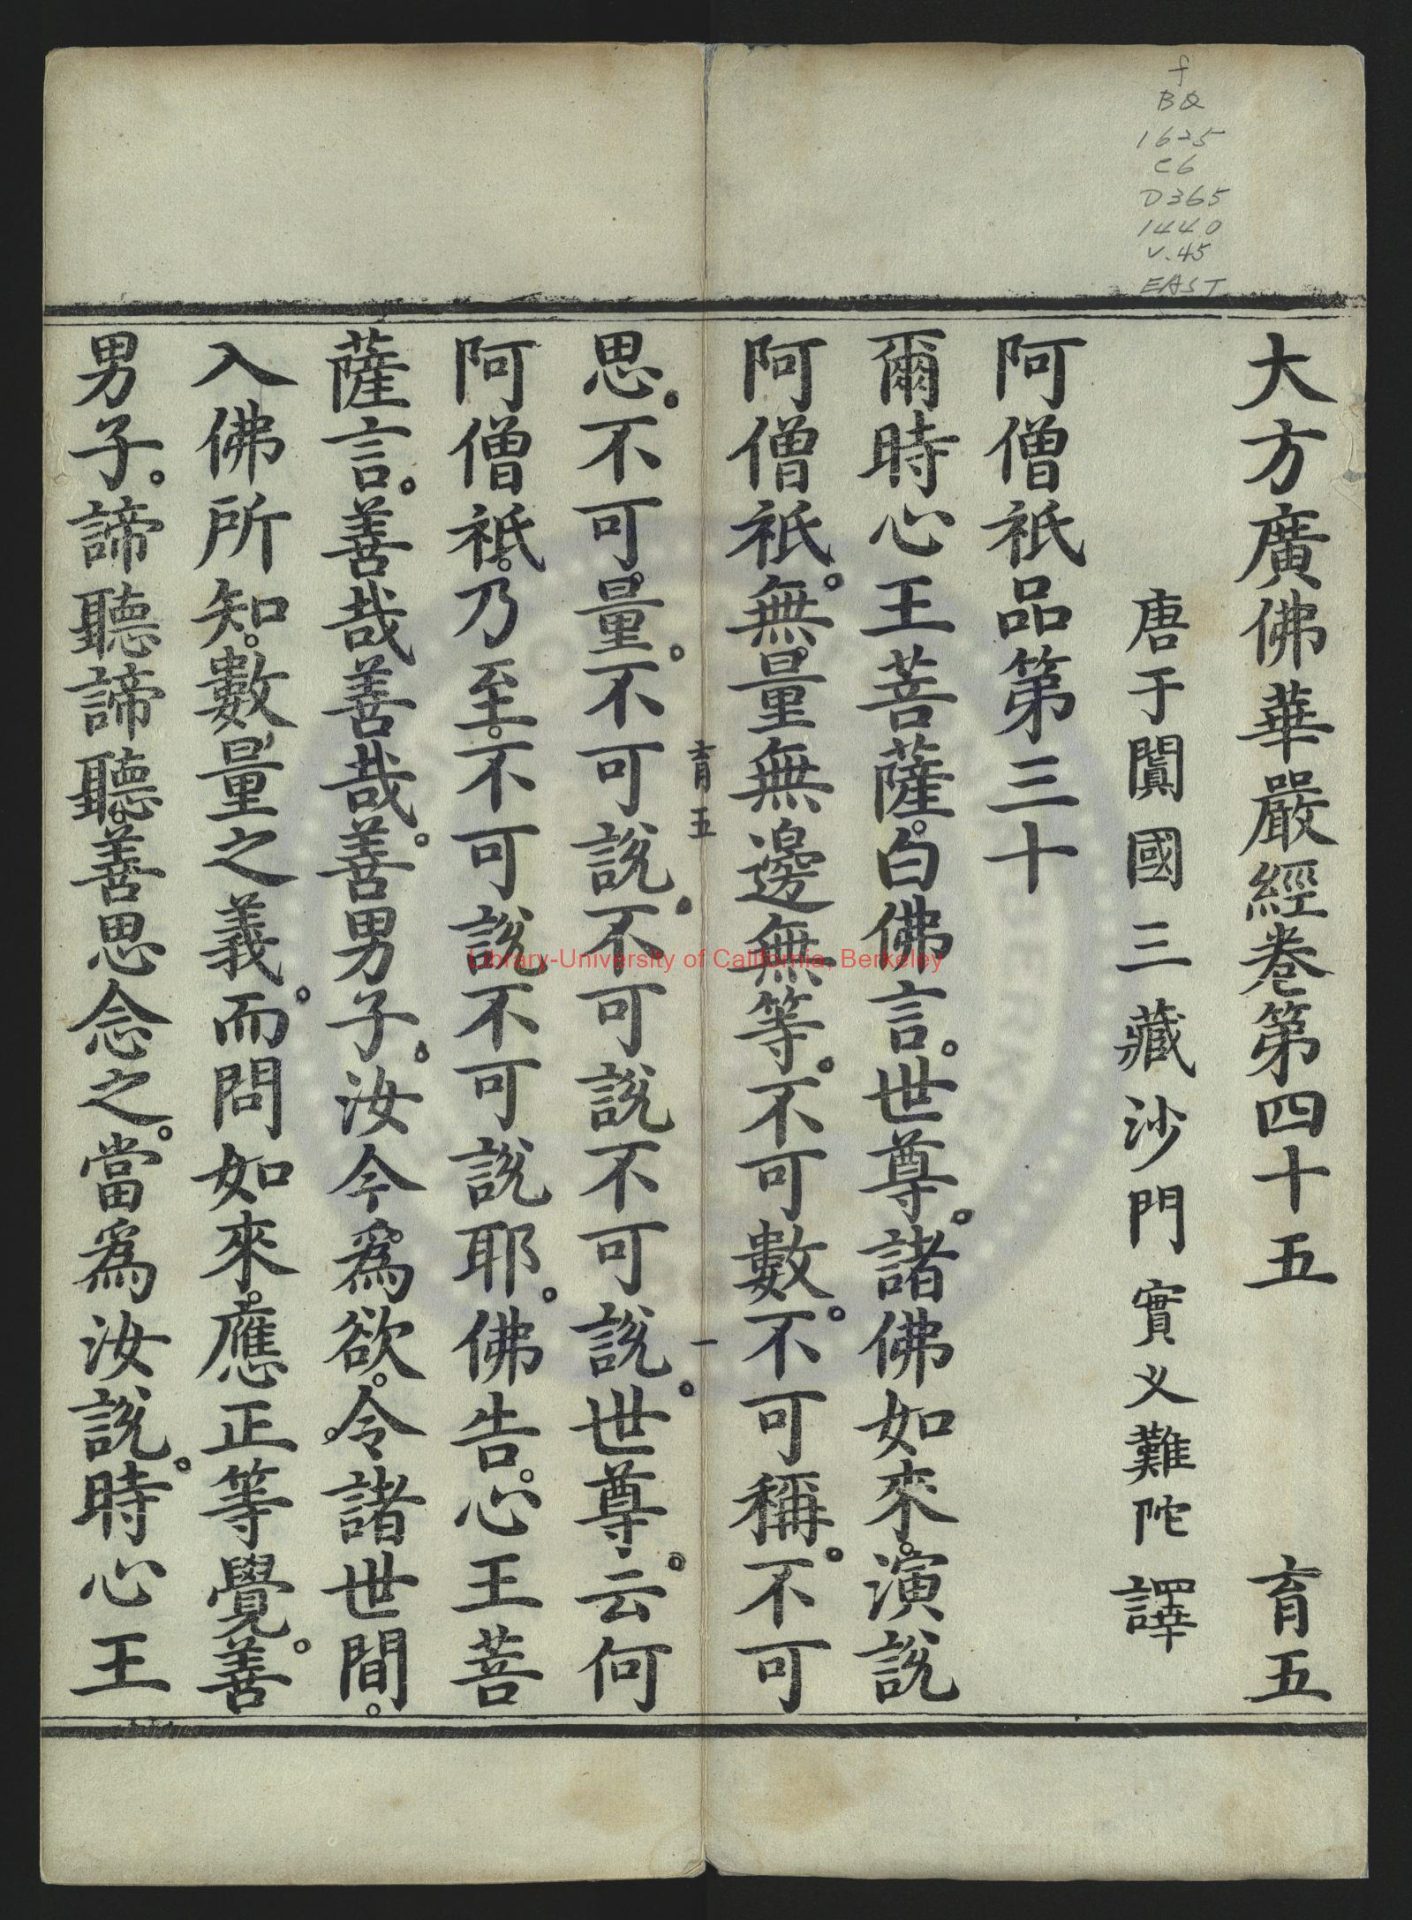 f
BQ
1625
C6
D365
1440
v.45
EAST
大方廣佛華嚴經卷第四十五 育五
唐于闐國三藏沙門實叉難陀譯
阿僧祇品第三十
爾時心王菩薩白佛言。世尊。諸佛如來。演說
阿僧祇。無量無邊無等。不可數。不可稱。不可
育五 一
思。不可量。不可說。不可說不可說。世尊。云何
阿僧祇。乃至。不可說不可說耶。佛告。心王菩
薩言。善哉善哉。善男子。汝今為欲。令諸世間。
入佛所知。數量之義。而問如來。應正等覺。善
男子。諦聽諦聽。善思念之。當為汝說。時心王
Library-University of California, Berkeley